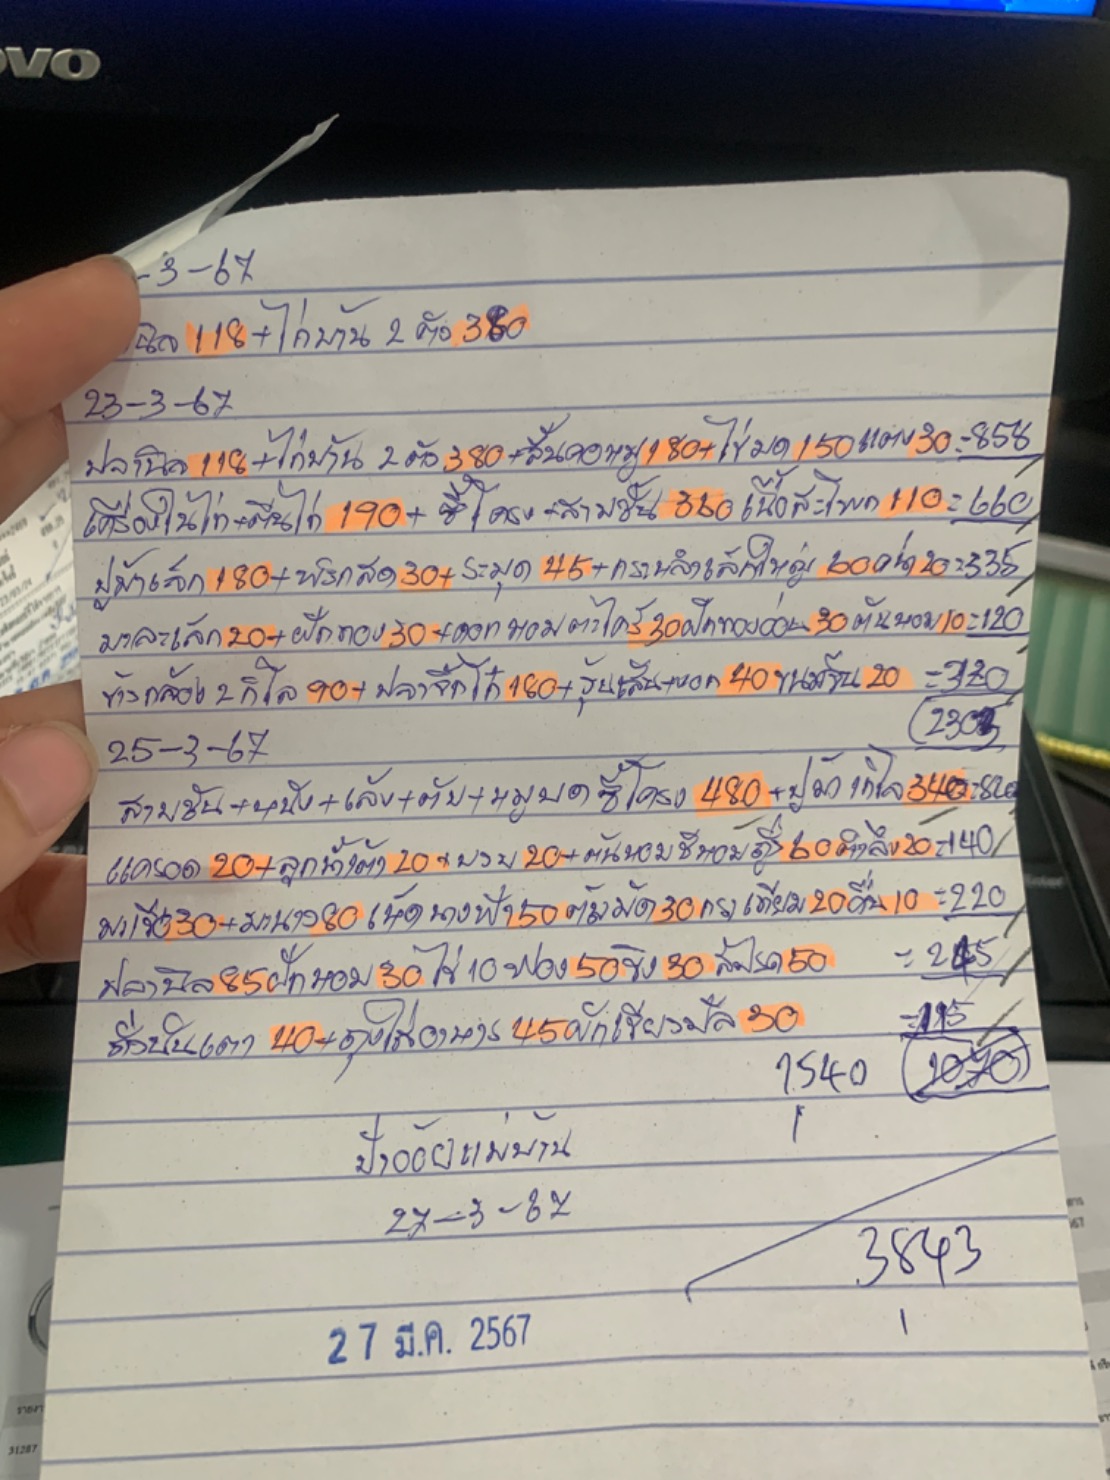 OVO
-3-67
นิล 118+ไก่บ้าน 2 ตัว 380
23-3-67
ปลานิล 118+ไก่บ้าน 2 ตัว 380+สันคอหมู 180+ไข่มด 150 แตง 30=858
เครื่องในไก่+ตีนไก่ 190+ซี่โครง+สามชั้น 360 เนื้อสะโพก 110=660
ปูม้าเล็ก 180+พริกสด 30+ระมุด 45+กะหล่ำเล็กใหญ่ 60 คน้า 20=335
มาละเล็ก 20+ฝักทอง 30+ดอกหอมตะไคร้ 30 ฝักทองอ่อน 30 ต้นหอม 10=120
ข้าวกล้อง 2 กิโล 90+ปลาจึกโก้ 180+วุ้นเส้น+งอก 40 ขนมจีน 20 =320
(2303
25-3-67
สามชั้น+หนัง+เล้ง+ตับ+หมูบด ซี่โครง 480+ปูม้า 1กิโล 340=820
แครอด 20+ลูกน้ำเต้า 20+บวบ 20+ต้นหอมชีหอมลู่ 60 ตำลึง 20=140
มะเขือ 30+มะนาว 80 เห็ดนางฟ้า 50 ต้มมัด 30 กระเทียม 20 ตื่น 10 =220
ปลานิล 85 ผักหอม 30 ไข่ 10 ฟอง 50 ขิง 30 สัปรด 50 =245
ถั่วบันเตา 40+ถุงใส่อาหาร 45 ผักเขียวมีล 30 =115
1540
ป้าอ้อยแม่บ้าน
27-3-67
3843
27 มี.ค. 2567
31287